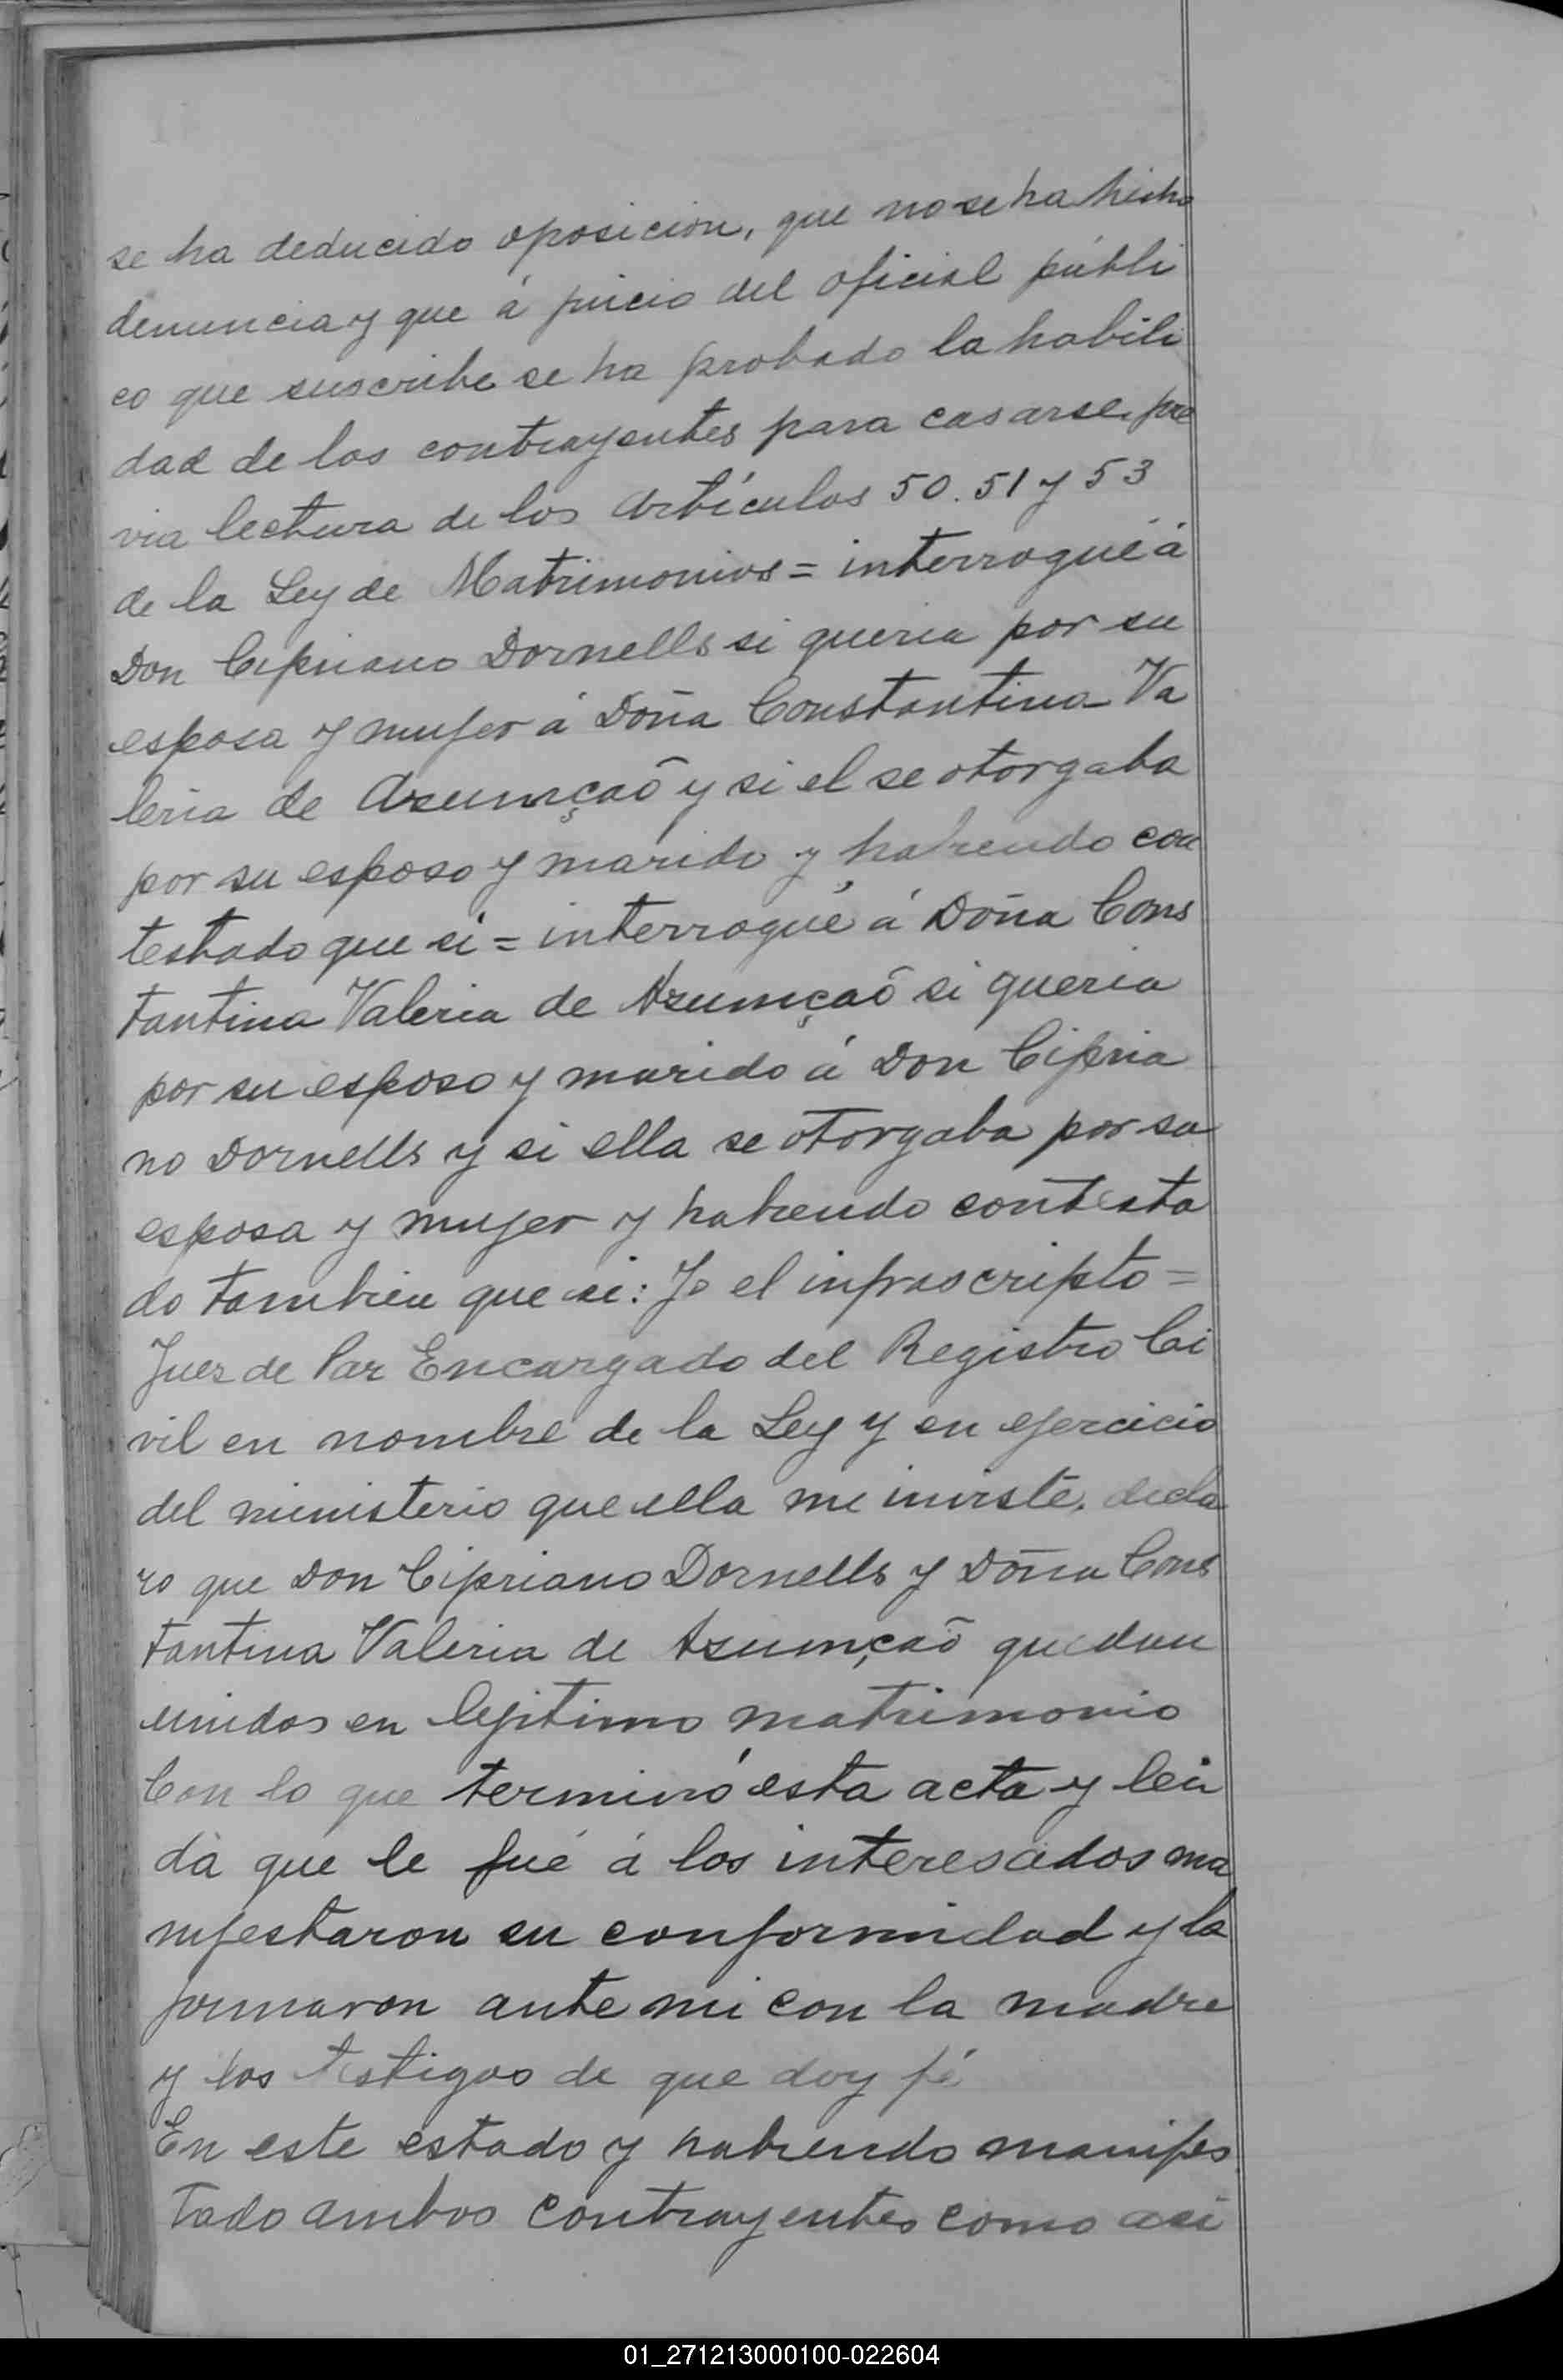 se ha deducido oposicion, que no se ha hecho
denuncia y que á juicio del oficial públi
co que suscribe se ha probado la habili
dad de los contrayentes para casarse, pre
via lectura de los Artículos 50. 51 y 53
de la Ley de Matrimonios = interrogué á
Don Cipriano Dornells si queria por su
esposa y mujer á Doña Constantina Va
leria de Asumçaõ y si el se otorgaba
por su esposo y marido y habiendo con
testado que si = interrogué á Doña Cons
tantina Valeria de Asumçaõ si queria
por su esposo y marido á Don Cipria
no Dornells y si ella se otorgaba por su
esposa y mujer y habiendo contesta
do tambien que si: Yo el infrascripto =
Juez de Paz Encargado del Registro Ci
vil en nombre de la Ley y en ejercicio
del ministerio que ella me inviste, decla
ro que Don Cipriano Dornells y Doña Cons
tantina Valeria de Asumçaõ quedan
unidos en lejitimo matrimonio
Con lo que terminó esta acta y lei
da que le fué á los interesados ma
nifestaron su conformidad y la
firmaron ante mi con la madre
y los testigos de que doy fé
En este estado y habiendo manifes
tado ambos contrayentes como asi
01_271213000100-022604